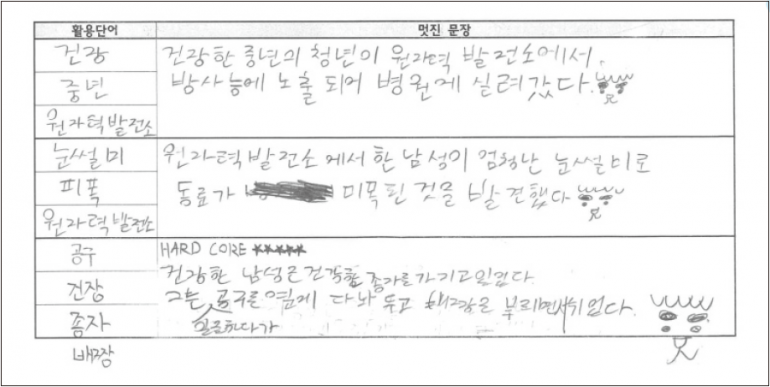 활용단어 멋진 문장
건강
중년
원자력발전소
건강한 중년의 청년이 원자력 발전소에서,
방사능에 노출 되어 병원에 실려갔다.
눈썰미
피폭
원자력발전소
원자력발전소에서 한 남성이 엄청난 눈썰미로
동료가 피폭된 것을 발견했다
공구
건장
종자
배짱
HARD CORE ★★★★★
건장한 남성은 건강한 종자를 가지고 있었다.
그는 공구를 옆에 다 놔 두고 배짱을 부리면서 쉬었다.
일을하다가